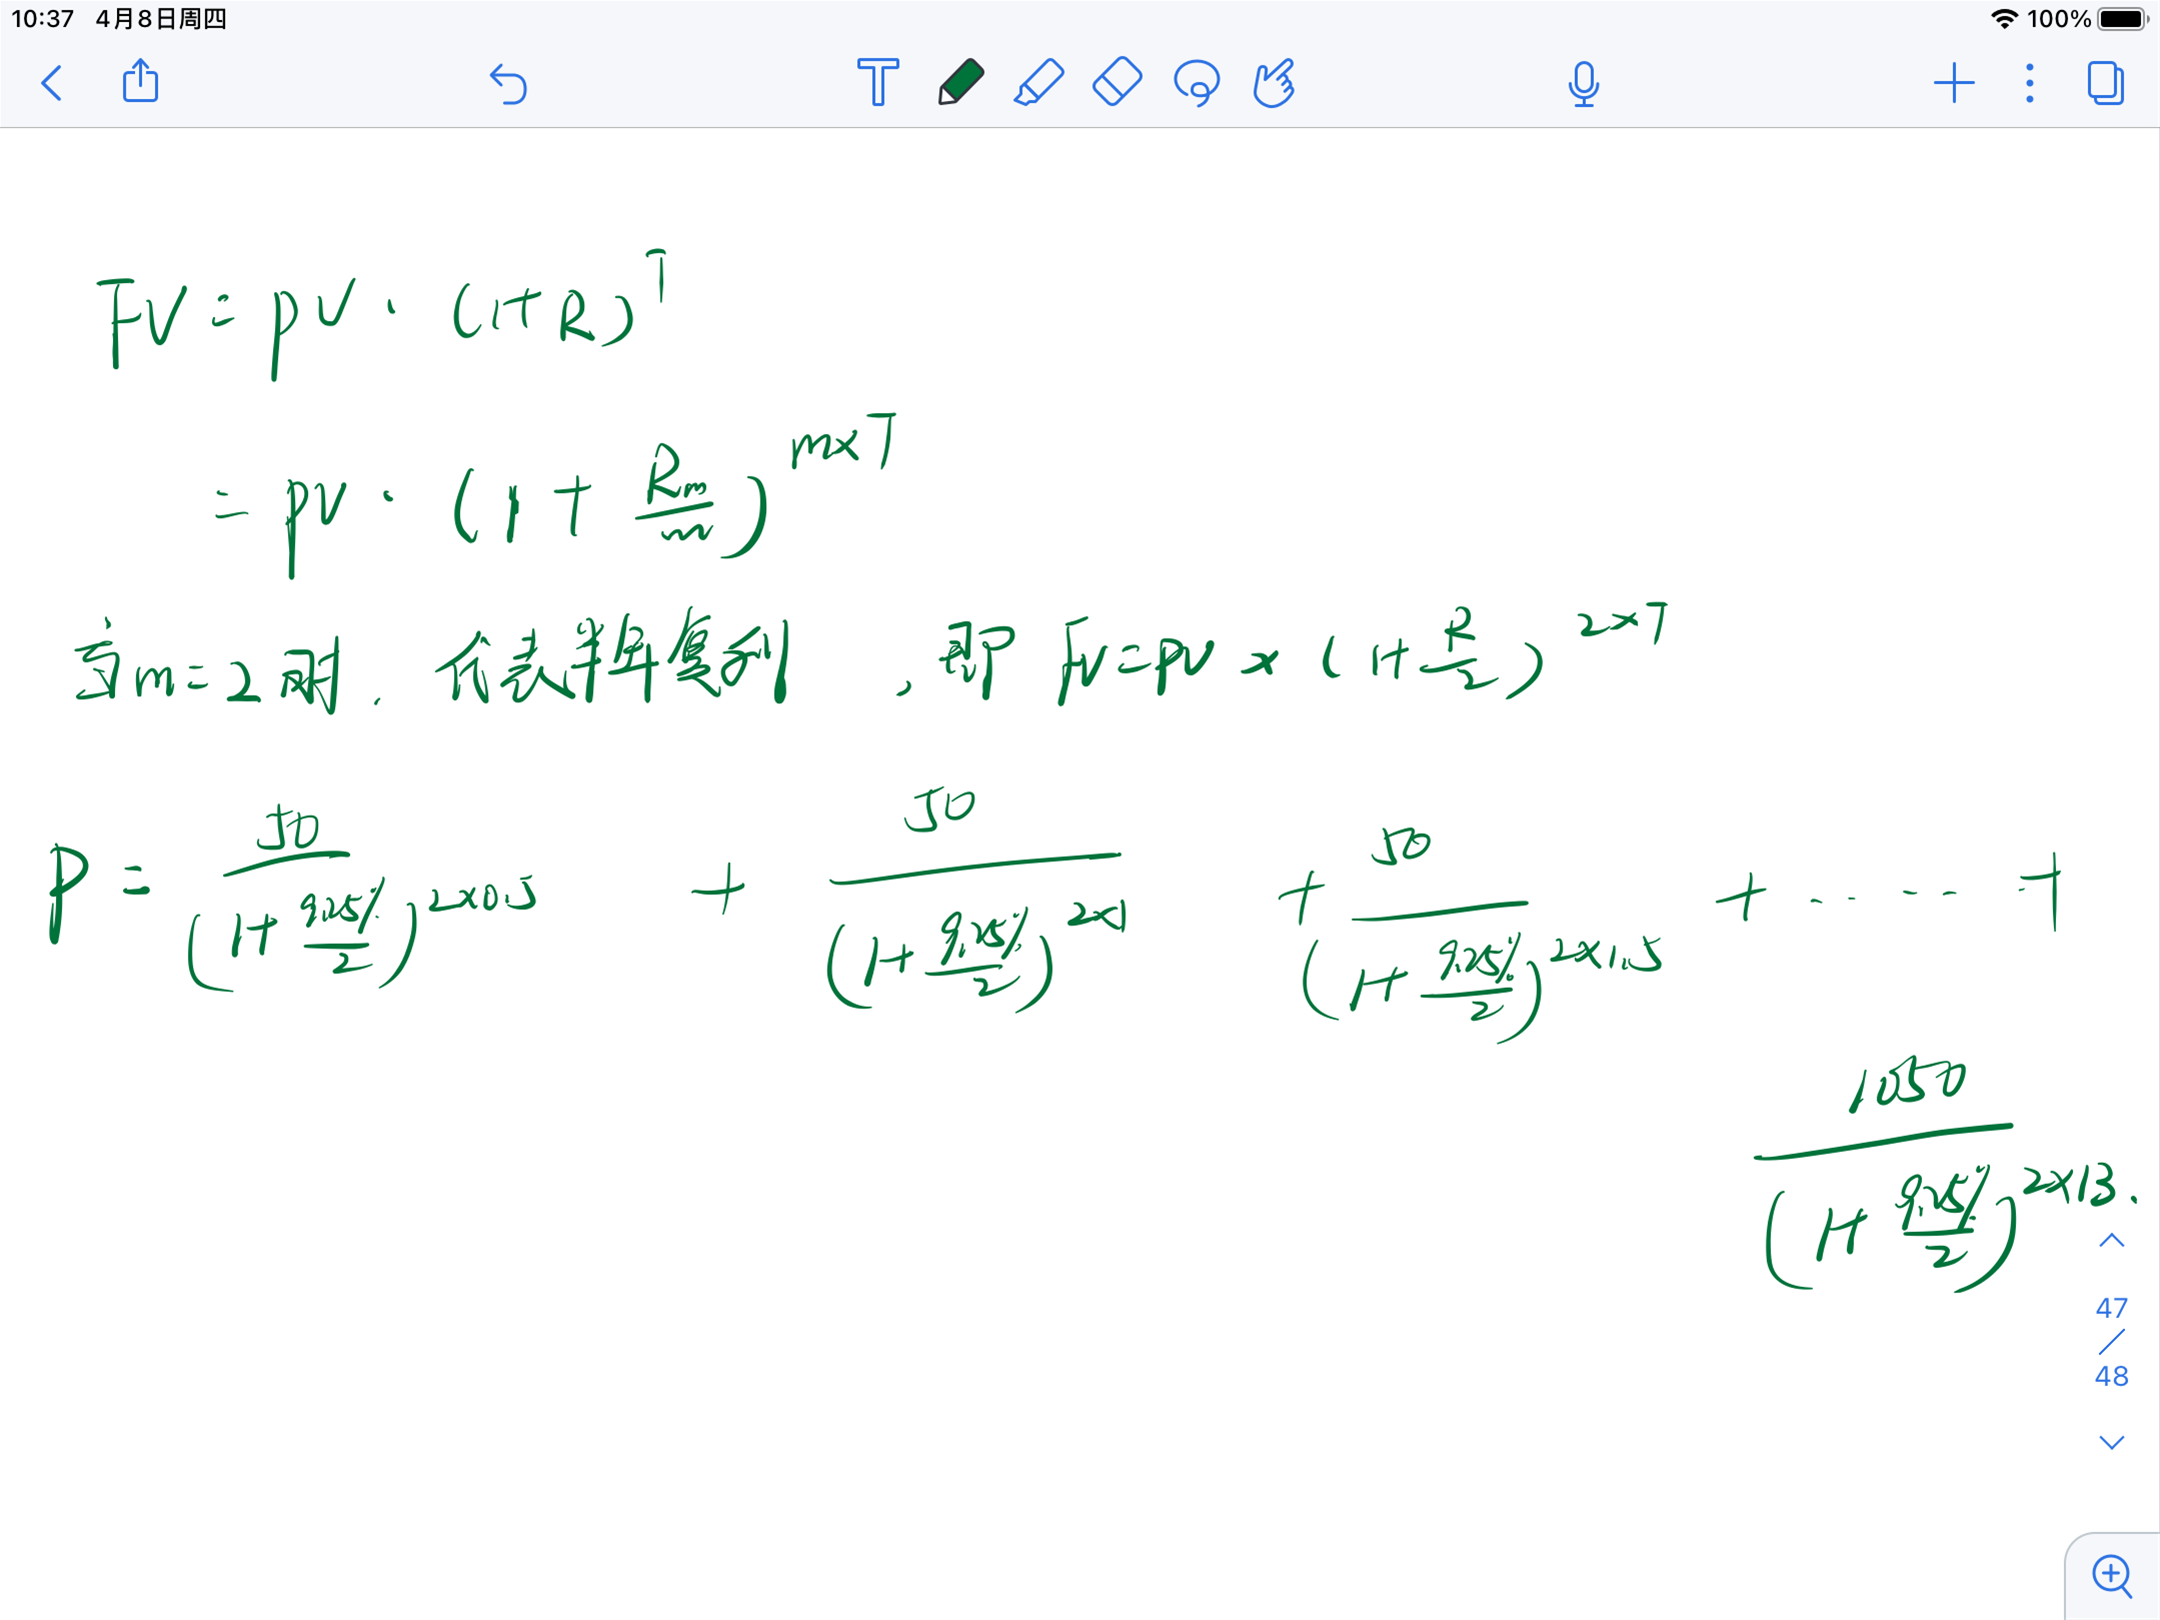 10:37 4月8日周四
100%
FV = PV · (1+R)^T
= PV · (1 + Rm/m)^(m×T)
当m=2时, 代表半年复利, 即 FV=PV × (1+R/2)^(2×T)
P = 50/(1+9.25%/2)^(2×0.5) + 50/(1+9.25%/2)^(2×1) + 50/(1+9.25%/2)^(2×1.5) + ...... +
1050/(1+9.25%/2)^(2×13).
47
/
48